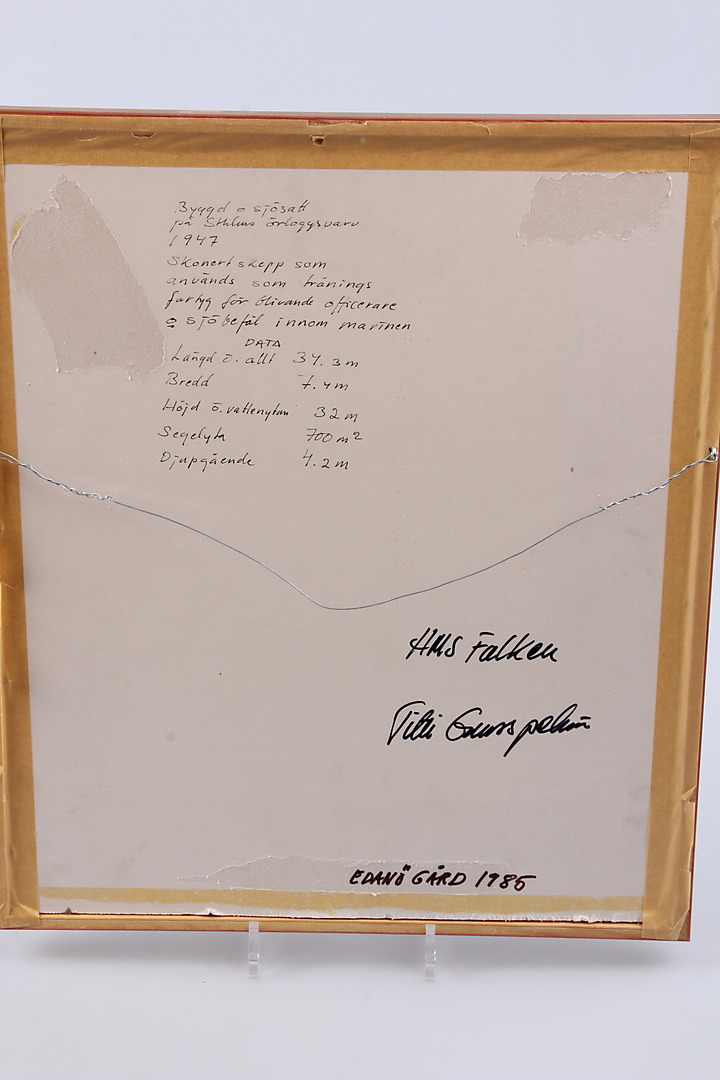 Byggd o sjösatt
på Sthlms örlogsvarv
1947
Skonert skepp som
används som tränings
fartyg för blivande officerare
o sjöbefäl innom marinen
DATA
Längd ö. allt 34.3 m
Bredd 7.4 m
Höjd ö. vattenytan 32 m
Segelyta 700 m²
Djupgående 4.2 m
HMS Falken
EDANÖ GÅRD 1985